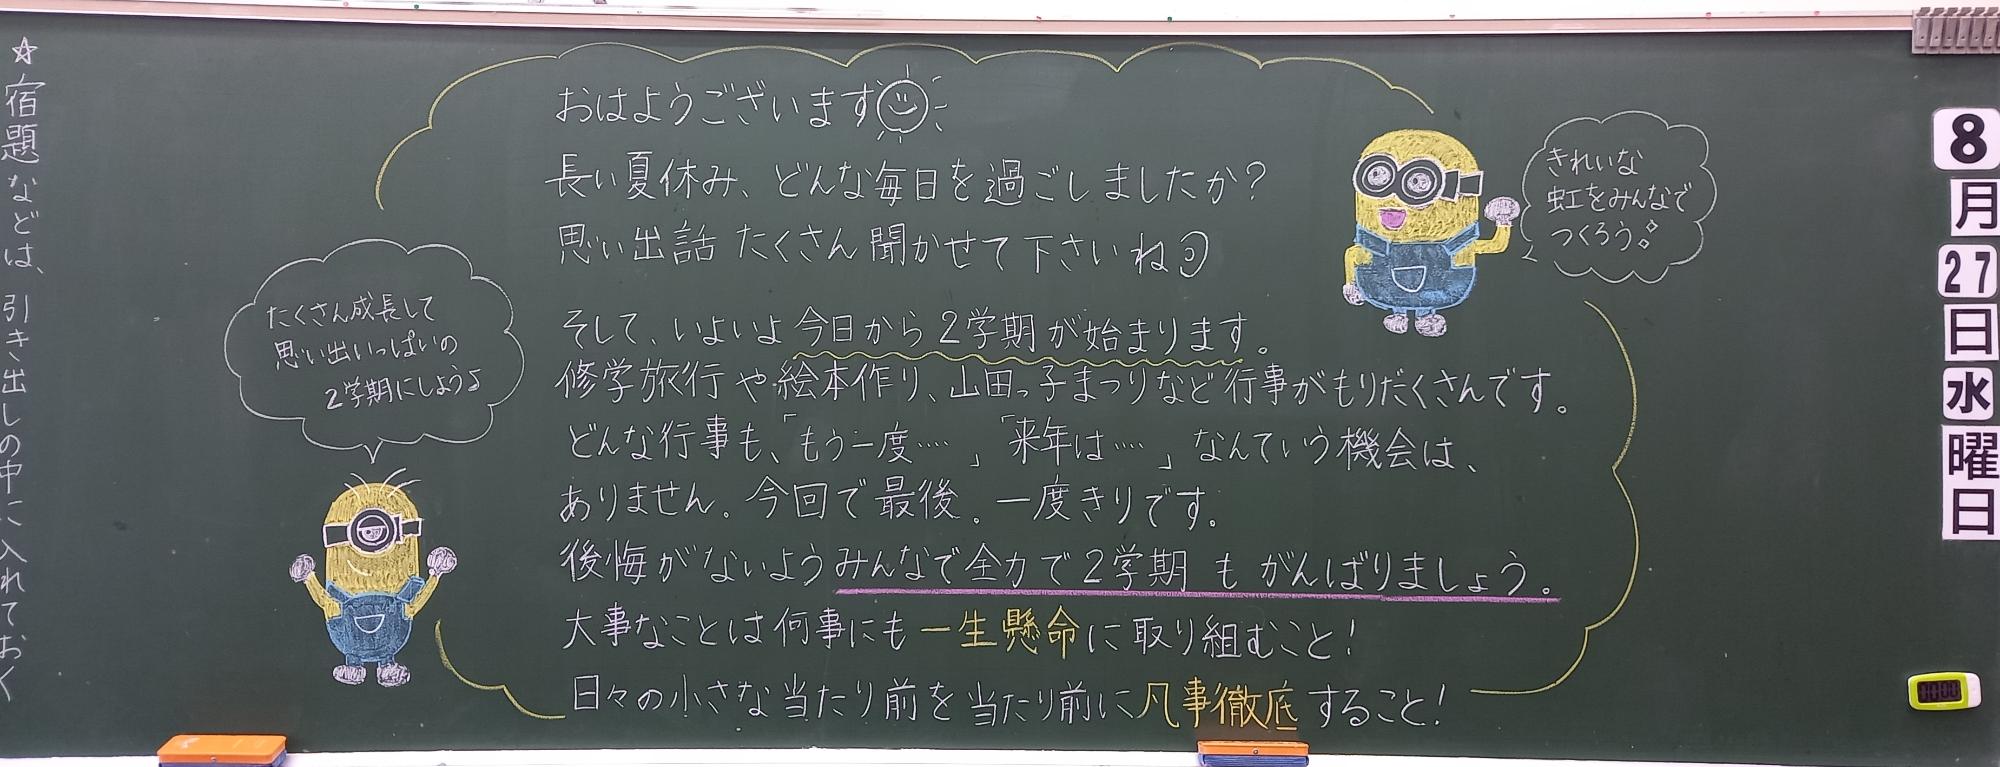 8月27日水曜日
おはようございます
長い夏休み、どんな毎日を過ごしましたか?
思い出話たくさん聞かせて下さいね
そして、いよいよ今日から2学期が始まります。
修学旅行や絵本作り、山田っ子まつりなど行事がもりだくさんです。
どんな行事も、「もう一度……」「来年は……」なんていう機会は、
ありません。今回で最後。一度きりです。
後悔がないようみんなで全力で2学期もがんばりましょう。
大事なことは何事にも一生懸命に取り組むこと!
日々の小さな当たり前を当たり前に凡事徹底すること!
きれいな
虹をみんなで
つくろう
たくさん成長して
思い出いっぱいの
2学期にしよう♪
☆宿題などは、引き出しの中に入れておく